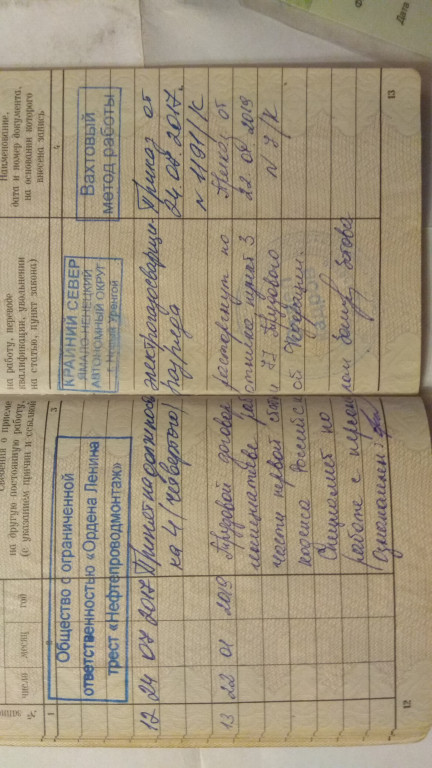 Сведения о приеме
на работу, переводе
на другую постоянную работу,
квалификации, увольнении
(с указанием причин и ссылкой
на статью, пункт закона)
Наименование,
дата и номер документа,
на основании которого
внесена запись
число
месяц
год
1
3
4
Общество с ограниченной
ответственностью «Ордена Ленина
трест «Нефтепроводмонтаж»
КРАЙНИЙ СЕВЕР
ЯМАЛО-НЕНЕЦКИЙ
АВТОНОМНЫЙ ОКРУГ
г. Новый Уренгой
Вахтовый
метод работы
12 24 07 2017 Принят на должность электрогазосварщи- Приказ от
на 4 (четвертого) разряда 24.07.2017.
N 1191/К
13 22 01 2019 Трудовой договор расторгнут по Приказ от
инициативе работника пункт 3 22 01 2019
части первой статьи 77 Трудового N 7/К
кодекса Российской Федерации.
Специалист по
работе с персоналом
Ознакомлен:
12
13